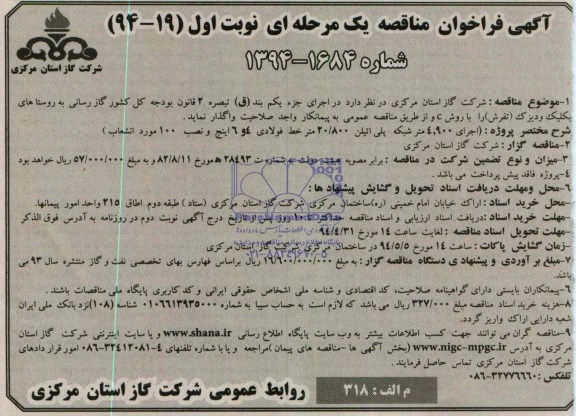 آگهی فراخوان مناقصه یک مرحله ای نوبت اول (۱۹-۹۴)
شرکت گاز استان مرکزی
شماره ۱۶۸۴-۱۳۹۴
۱-موضوع مناقصه: شرکت گاز استان مرکزی در نظر دارد در اجرای جزء یکم بند (ق) تبصره ۲ قانون بودجه کل کشور گاز رسانی به روستا های
بکلیک ودیزک (تفرش)را با روش c و از طریق مناقصه عمومی به پیمانکار واجد صلاحیت واگذار نماید.
شرح مختصر پروژه : (اجرای ۴,۹۰۰ متر شبکه پلی اتیلن ۲۰/۸۰۰ متر خط فولادی ۴و ۶ اینچ و نصب ۱۰۰ مورد انشعاب )
۲-مناقصه گزار : شرکت گاز استان مرکزی
۳-میزان و نوع تضمین شرکت در مناقصه : برابر مصوبه هیئت دولت به شماره ت ۲۸۴۹۳ ه مورخ ۸۲/۸/۱۱ و به مبلغ ۵۷/۰۰۰/۰۰۰ ریال خواهد بود
۴-پروژه فاقد پیش پرداخت می باشد.
۶-محل ومهلت دریافت اسناد تحویل و گشایش پیشنهاد ها :
-محل خرید اسناد : اراک خیابان امام خمینی (ره)ساختمان مرکزی شرکت گاز استان مرکزی (ستاد ) طبقه دوم اطاق ۲۱۵ واحد امور پیمانها.
-مهلت خرید اسناد :دریافت اسناد ارزیابی و اسناد مناقصه حداکثر تا روز پس از تاریخ درج آگهی نوبت دوم در روزنامه به آدرس فوق الذکر
-مهلت تحویل اسناد مناقصه : لغایت ساعت ۱۴ مورخ ۹۴/۴/۳۱
-زمان گشایش پاکات : ساعت ۱۴ مورخ ۹۴/۵/۵ در ساختمان مرکزی شرکت گاز استان مرکزی
۷-مبلغ بر آوردی و پیشنهادی دستگاه مناقصه گزار : به مبلغ ۱۶/۹۰۰/۰۰۰/۰۰۰ ریال براساس فهارس بهای تخصصی نفت و گاز منتشره سال ۹۳ می
باشد.
۶-پیمانکاران بایستی دارای گواهینامه صلاحیت، کد اقتصادی و شناسه ملی اشخاص حقوقی ایرانی و کد کاربری پایگاه ملی مناقصات باشند.
۸-هزینه خرید اسناد مناقصه مبلغ ۳۲۷/۰۰۰ ریال می باشد که لازم است به حساب سیبا به شماره ۰۱۰۶۶۱۳۹۳۵۰۰۰ شناسه (۱۰۸)نزد بانک ملی ایران
شعبه دارایی اراک واریز گردد.
۹-مناقصه گران می توانند جهت کسب اطلاعات بیشتر به وب سایت پایگاه اطلاع رسانی www.shana.ir و یا سایت اینترنتی شرکت گاز استان
مرکزی به آدرس www.nigc-mpgc.ir (بخش آگهی ها -مناقصه های پیمان )مراجعه و یا با شماره تلفنهای ۴-۳۲۴۱۲۰۸۱-۰۸۶ امور قرار دادهای
شرکت گاز استان مرکزی تماس حاصل فرمایند.
تلفکس: ۳۲۷۷۶۶۶۰-۰۸۶
م الف : ۳۱۸
روابط عمومی شرکت گاز استان مرکزی